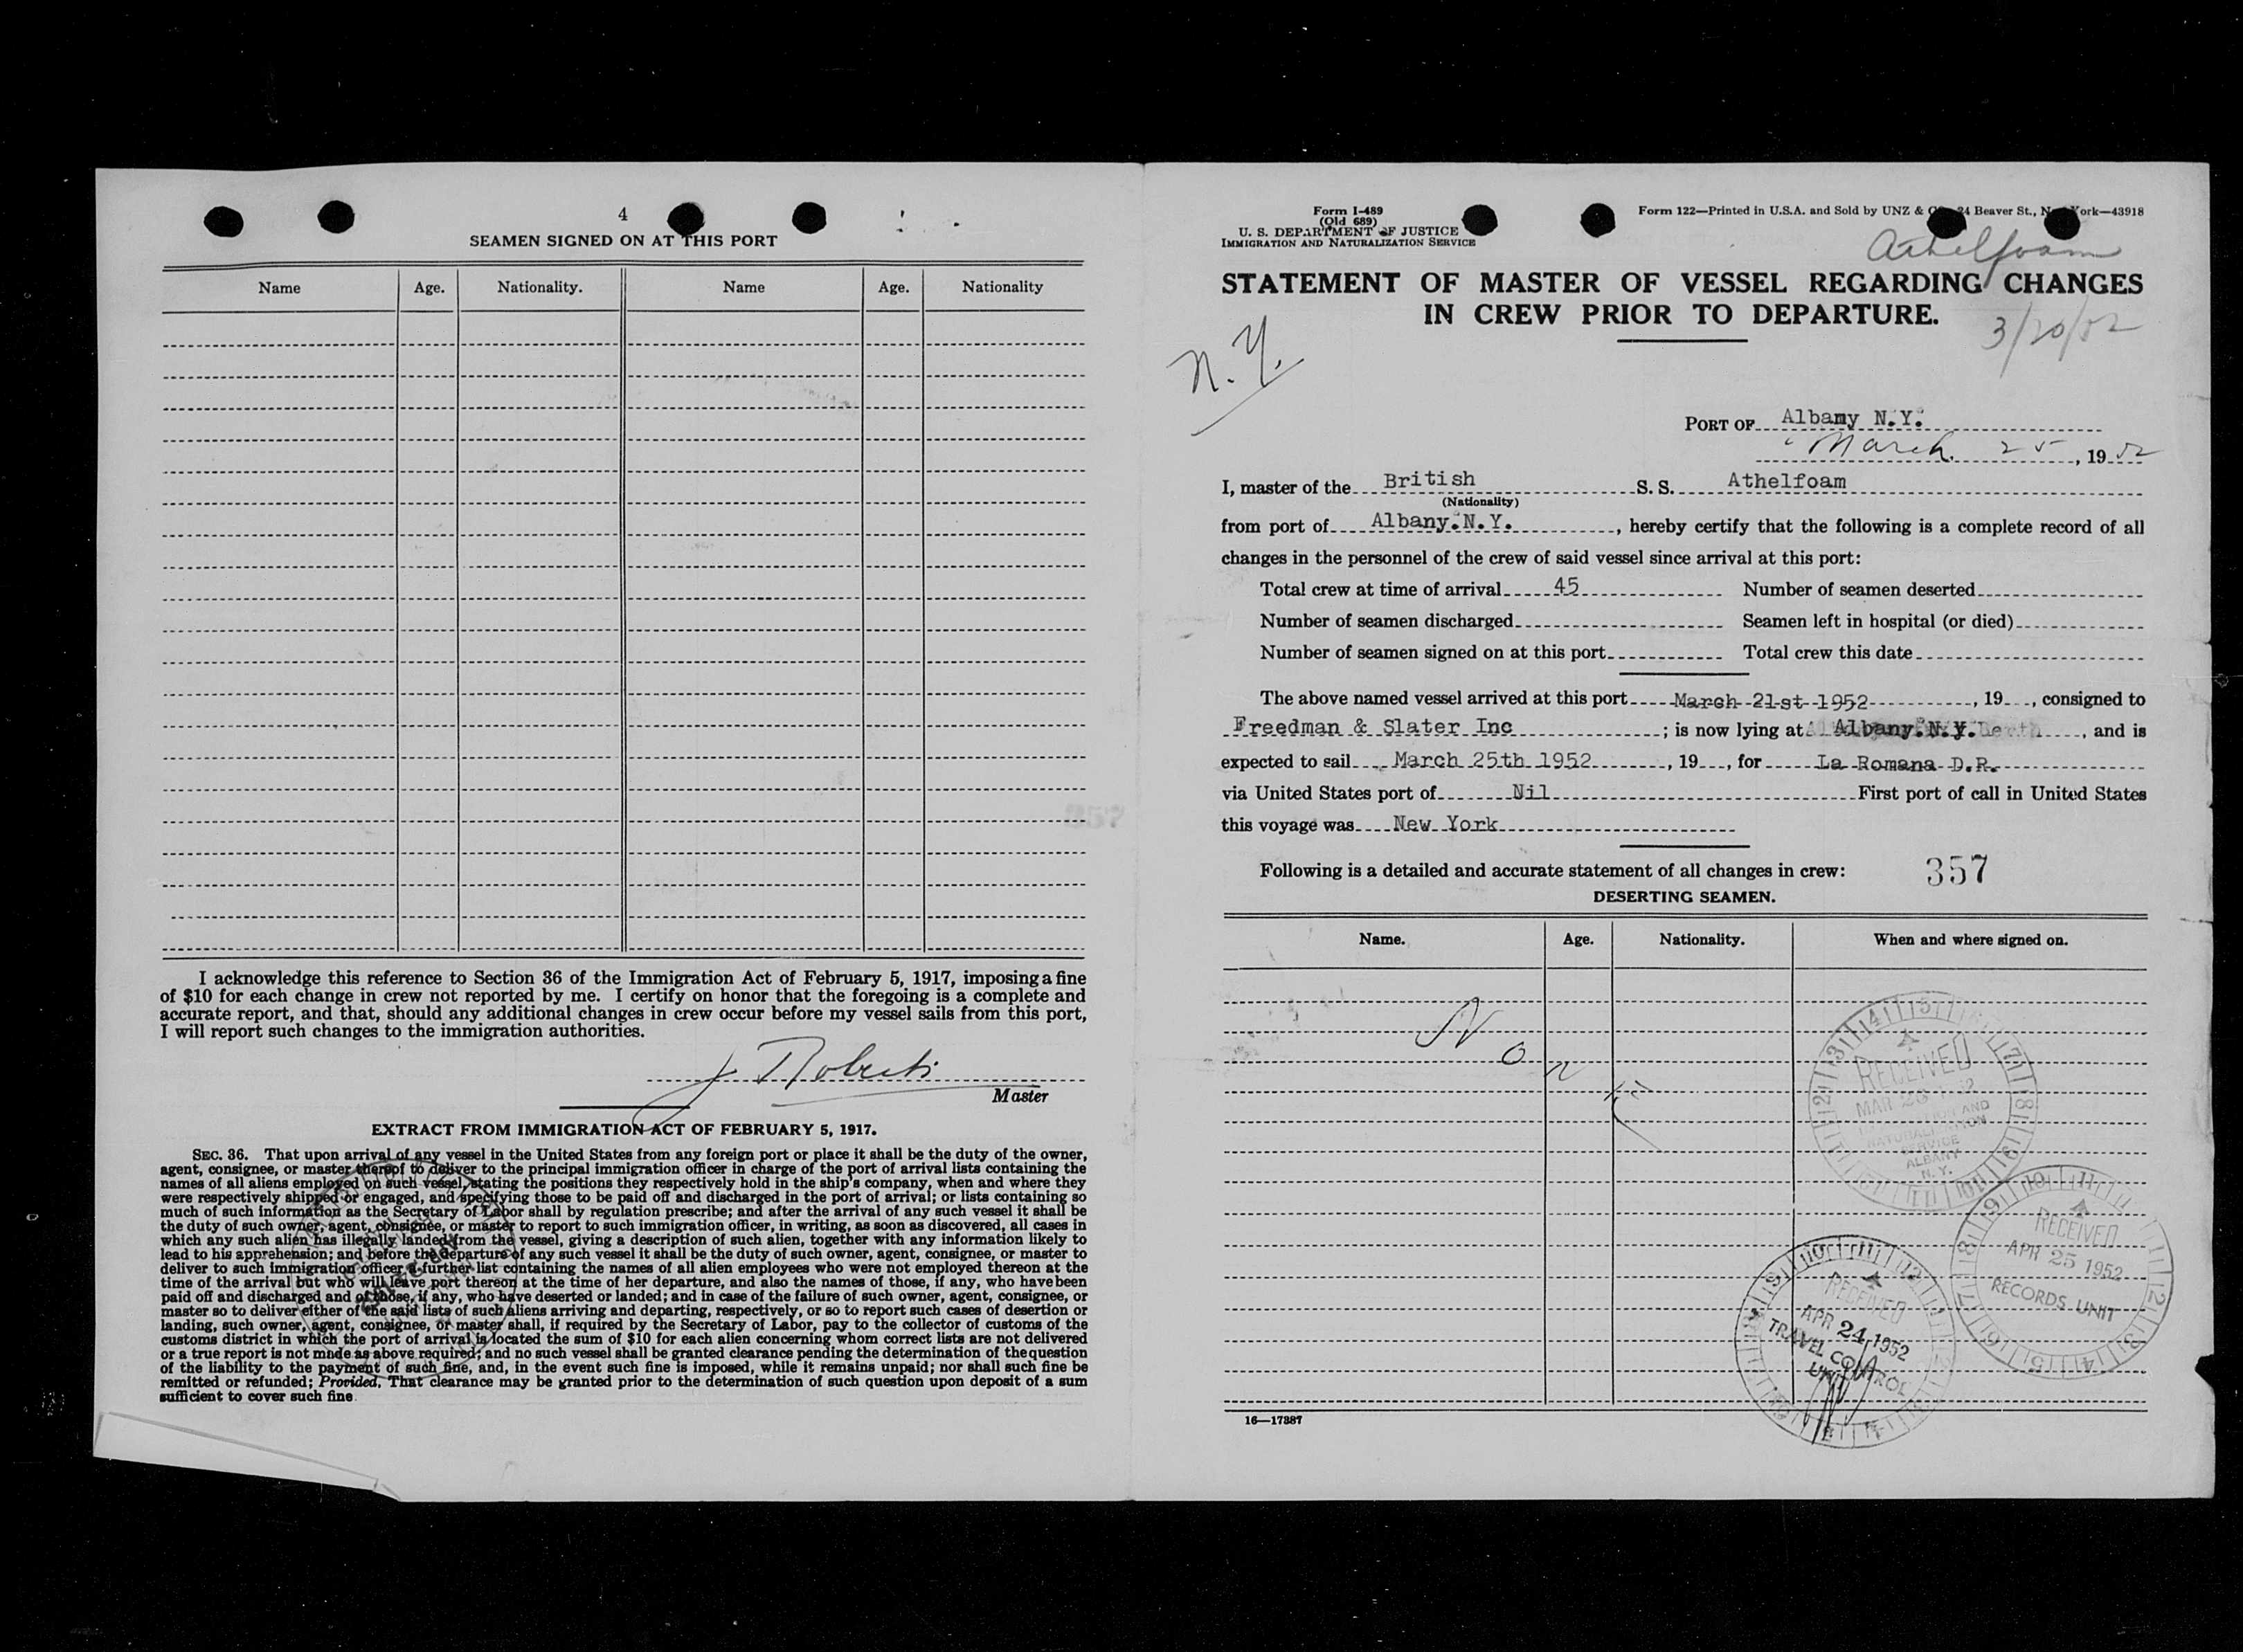 4
SEAMEN SIGNED ON AT THIS PORT
Name Age. Nationality. Name Age. Nationality
I acknowledge this reference to Section 36 of the Immigration Act of February 5, 1917, imposing a fine
of $10 for each change in crew not reported by me. I certify on honor that the foregoing is a complete and
accurate report, and that, should any additional changes in crew occur before my vessel sails from this port,
I will report such changes to the immigration authorities.
J Roberts
Master
EXTRACT FROM IMMIGRATION ACT OF FEBRUARY 5, 1917.
SEC. 36. That upon arrival of any vessel in the United States from any foreign port or place it shall be the duty of the owner,
agent, consignee, or master thereof to deliver to the principal immigration officer in charge of the port of arrival lists containing the
names of all aliens employed on such vessel, stating the positions they respectively hold in the ship's company, when and where they
were respectively shipped or engaged, and specifying those to be paid off and discharged in the port of arrival; or lists containing so
much of such information as the Secretary of Labor shall by regulation prescribe; and after the arrival of any such vessel it shall be
the duty of such owner, agent, consignee, or master to report to such immigration officer, in writing, as soon as discovered, all cases in
which any such alien has illegally landed from the vessel, giving a description of such alien, together with any information likely to
lead to his apprehension; and before the departure of any such vessel it shall be the duty of such owner, agent, consignee, or master to
deliver to such immigration officer a further list containing the names of all alien employees who were not employed thereon at the
time of the arrival but who will leave port thereon at the time of her departure, and also the names of those, if any, who have been
paid off and discharged and of those, if any, who have deserted or landed; and in case of the failure of such owner, agent, consignee, or
master so to deliver either of the said lists of such aliens arriving and departing, respectively, or so to report such cases of desertion or
landing, such owner, agent, consignee, or master shall, if required by the Secretary of Labor, pay to the collector of customs of the
customs district in which the port of arrival is located the sum of $10 for each alien concerning whom correct lists are not delivered
or a true report is not made as above required; and no such vessel shall be granted clearance pending the determination of the question
of the liability to the payment of such fine, and, in the event such fine is imposed, while it remains unpaid; nor shall such fine be
remitted or refunded; Provided, That clearance may be granted prior to the determination of such question upon deposit of a sum
sufficient to cover such fine.
Form I-489
(Old 689)
U. S. DEPARTMENT OF JUSTICE
IMMIGRATION AND NATURALIZATION SERVICE
Form 122—Printed in U.S.A. and Sold by UNZ & 24 Beaver St., York—43918
Athelfoam
STATEMENT OF MASTER OF VESSEL REGARDING CHANGES
IN CREW PRIOR TO DEPARTURE.
3/20/52
N.Y.
PORT OF Albany N.Y.
March 25, 1952
I, master of the British S. S. Athelfoam
(Nationality)
from port of Albany.N.Y., hereby certify that the following is a complete record of all
changes in the personnel of the crew of said vessel since arrival at this port:
Total crew at time of arrival 45 Number of seamen deserted
Number of seamen discharged Seamen left in hospital (or died)
Number of seamen signed on at this port Total crew this date
The above named vessel arrived at this port March 21st 1952, 19, consigned to
Freedman & Slater Inc; is now lying at Albany.N.Y., and is
expected to sail March 25th 1952, 19, for La Romana D.R.
via United States port of Nil First port of call in United States
this voyage was New York
Following is a detailed and accurate statement of all changes in crew: 357
DESERTING SEAMEN.
Name. Age. Nationality. When and where signed on.
None
RECEIVED
MAR
NATURALIZATION
SERVICE
ALBANY
N. Y.
RECEIVED
APR 25 1952
RECORDS UNIT
RECEIVED
APR 24 1952
TRAVEL CONTROL
UNIT
16—17387